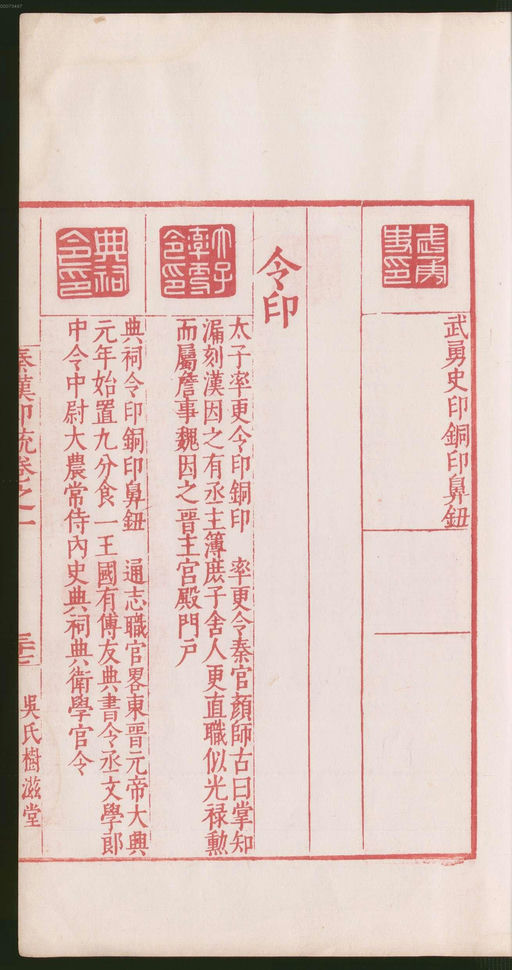 00073447
武勇史印
武勇史印銅印鼻鈕
令印
太子率更令印
太子率更令印銅印　率更令秦官顏師古曰掌知
漏刻漢因之有丞主簿庶子舍人更直職似光祿勳
而屬詹事魏因之晉主宮殿門戶
典祠令印
典祠令印銅印鼻鈕　通志職官畧東晉元帝大興
元年始置九分食一王國有傅友典書令丞文學郎
中令中尉大農常侍內史典祠典衛學官令
秦漢印統卷之一
吳氏樹滋堂